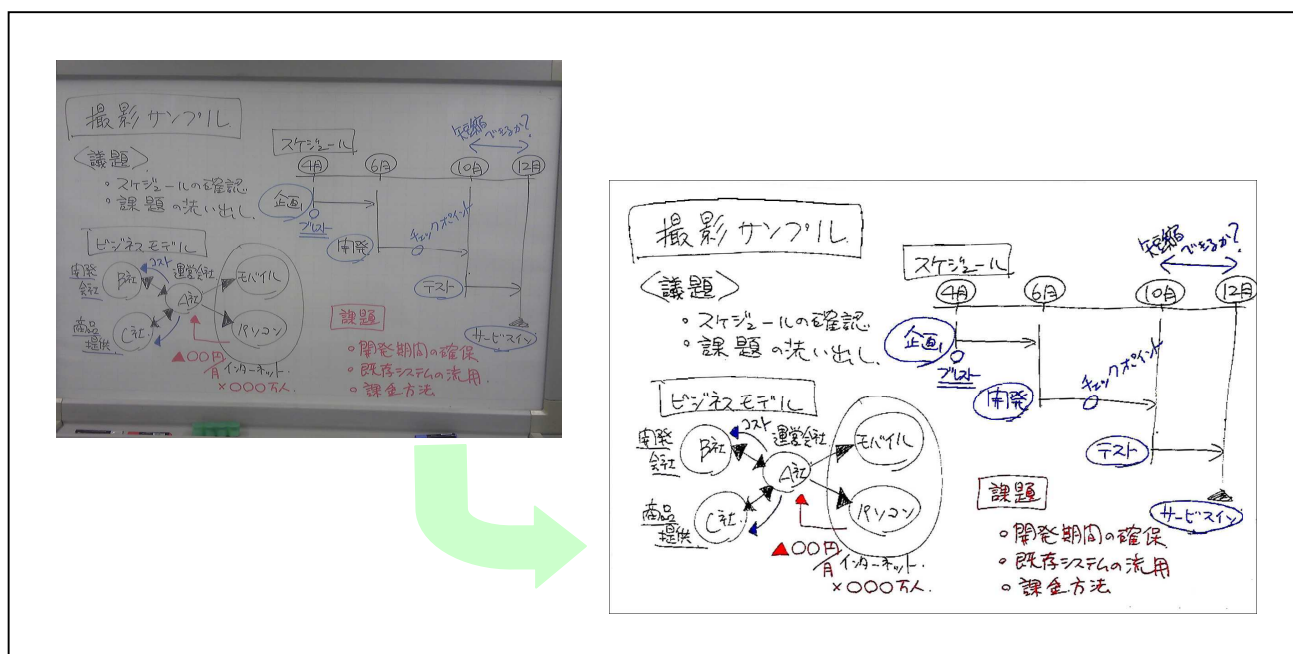 撮影サンプル
<議題>
・スケジュールの確認
・課題の洗い出し
スケジュール
4月 6月 10月 12月
短縮できるか?
企画
ブレスト
開発
チェックポイント
テスト
サービスイン
ビジネスモデル
開発会社
B社
コスト
運営会社
A社
商品提供
C社
モバイル
パソコン
インターネット
▲〇〇円/月
×〇〇〇万人
課題
・開発期間の確保
・既存システムの流用
・課金方法
撮影サンプル
<議題>
・スケジュールの確認
・課題の洗い出し
スケジュール
4月 6月 10月 12月
短縮できるか?
企画
ブレスト
開発
チェックポイント
テスト
サービスイン
ビジネスモデル
開発会社
B社
コスト
運営会社
A社
商品提供
C社
モバイル
パソコン
インターネット
▲〇〇円/月
×〇〇〇万人.
課題
・開発期間の確保
・既存システムの流用
・課金方法